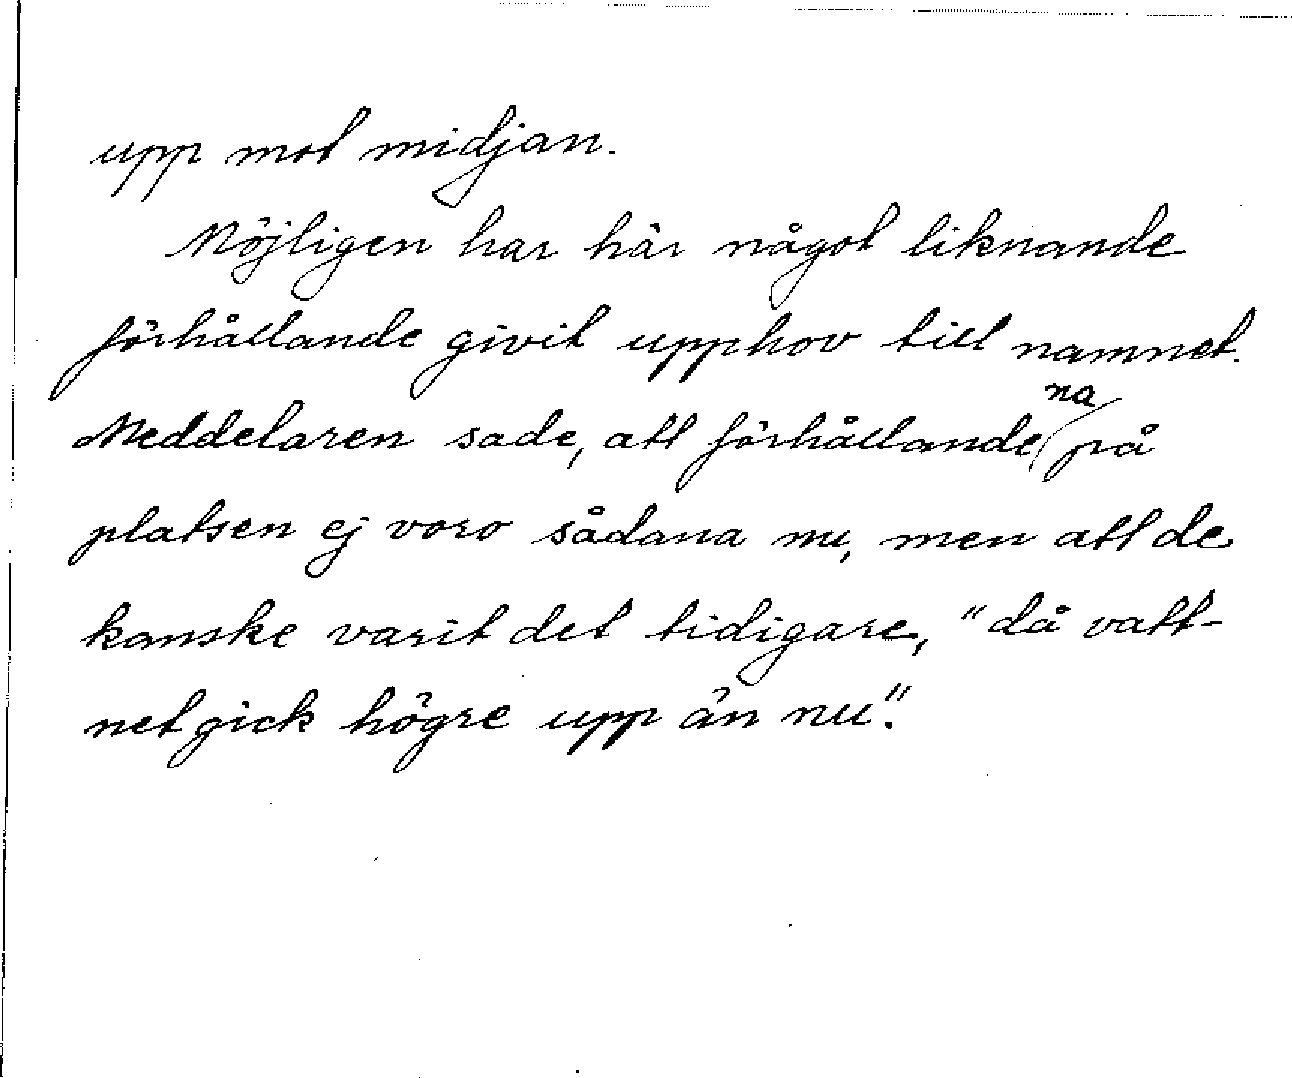 upp mot midjan.
Möjligen har här något liknande
förhållande givit upphov till namnet.
Meddelaren sade, att förhållandena på
platsen ej voro sådana nu, men att de
kanske varit det tidigare, "då vatt-
net gick högre upp än nu".